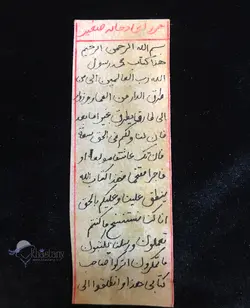 بسم الله الرحمن الرحيم
هذا كتاب محمد رسول
الله رب العالمين الى من
طرق الدار من العمار و زوار
فان لنا و لكم فى الحق سعة
فان تك عاشقا مولعا او
فاجرا مقتحما فهذا كتاب الله
ينطق علينا و عليكم بالحق
انا كنا نستنسخ ما كنتم
تعملون و رسلنا يكتبون
ما تمكرون اتركوا صاحب
كتابى هذا و انطلقوا الى